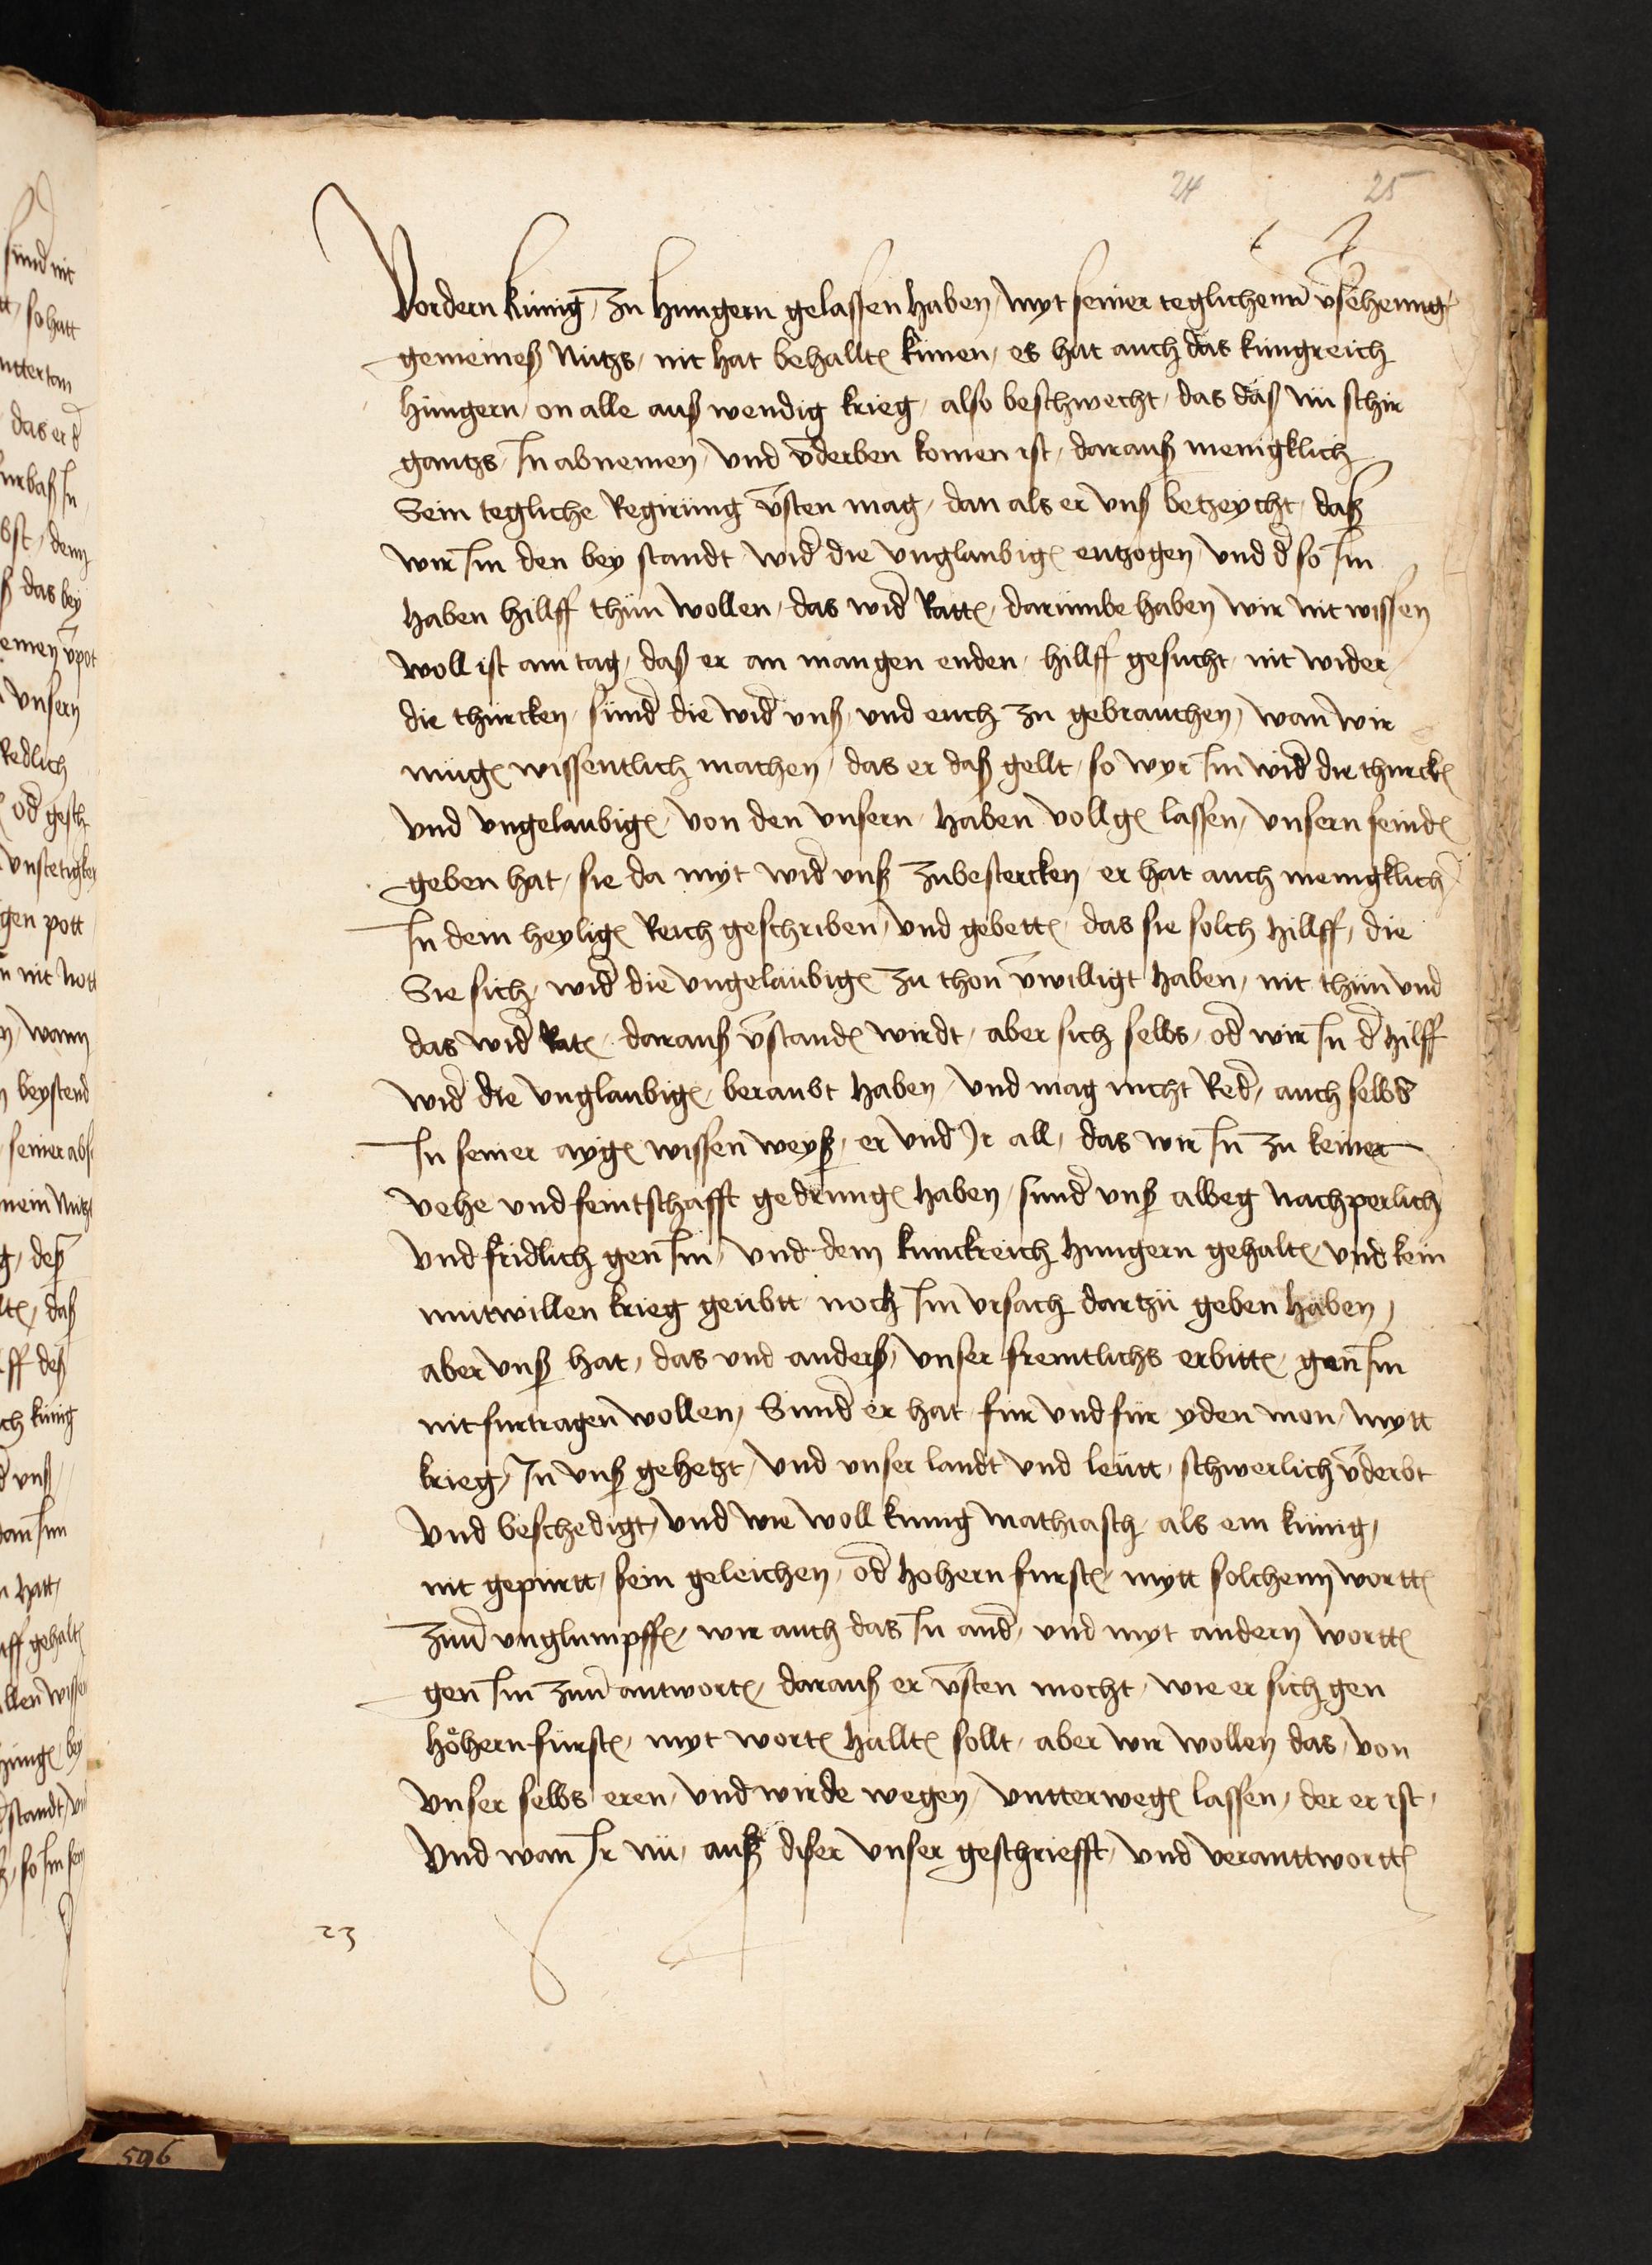 24 25
Vordern künig, zu hungern gelassen haben, myt seiner teglichenn v̄sehenng
gemeines Nutzs, nit hat behallten künen, es hat auch das kungreich
hungern, on alle auß wendig krieg, also beschwecht, das daß nü schir
gantzs, In abnemen, und v̄derben komen ist, darauß menigklich
Sein tegliche Regirüng v̄sten mag, dan als er vnß betzeycht, daß
wir Im den bey standt wid̄ die vnglaubigen entzogen, vnd d̄ so Im
haben hillff thün wollen, das wid̄ Ratten, darümbe haben wir nit wissen
woll ist am tag, daß er an mangen enden, hillff gesucht, nit wider
die thürcken, sünd̄ die wid̄ vnß, vnd euch zu gebrauchen, wan wir
mügen wissentlich machen, das er daß gellt, so wyr Im wid̄ die thurcken
vnd vngelaubigen, von den vnsern, haben vollgen lassen, vnsern feinden
geben hat, sie da myt wid̄ vnß zubestercken, er hat auch menigklich
In dem heyligen Reich geschriben, vnd gebetten, das sie solch hillff, die
Sie sich, wid̄ die vngelaübigen zu thon v̄willigt haben, nit thün vnd
das wid̄ Raten, darauß v̄standen wirdt, aber sich selbs, od̄ wir In d̄ hilff
wid̄ die vnglaubigen, beraubt haben, vnd mag nicht Red̄, auch selbs
In seiner aygen wissen weyß, er vnd Ir all, das wir In zu keiner
vehe vnd feintschafft gedrungen haben, sund̄ vnß alweg nachperlich
vnd fridlich gen Im, vnd dem kunckreich hungern gehalten, vnd kein
mutwillen krieg geübtt noch Im vrsach dartzü geben haben,
aber vnß hat, das vnd anderß, vnser freintlichs erbitten, gen Im
nit furtragen wollen, Sund̄ er hat für vnd für yden mon, mytt
krieg, In vnß gehetzt, vnd vnser landt vnd leütt, schwerlich v̄derbt
vnd beschedigt, vnd wie woll kunig mathiasch, als ein künig,
nit gepürtt, sein geleichen, od̄ hohern fursten, mytt solchenn wortten
zuu̅ unglumpffen, wir auch das In and̄, vnd myt andern wortten
gen Im zuu̅ antworten, darauß er v̄sten mocht, wie er sich gen
höhern fürsten, myt worten hallten sollt, aber wir wollen das, von
vnser selbs eren, vnd wirde wegen, vntterwegen lassen, der er ist,
Vnd wan Ir nü, auß diser vnser geschriefft, vnd veranttwortten
23
596